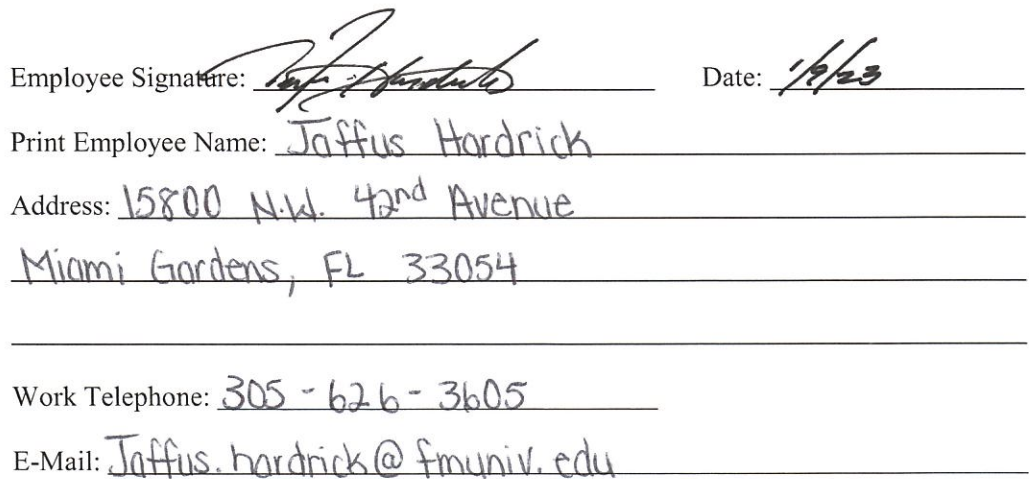 Employee Signature: Date: 1/9/23
Print Employee Name: Jaffus Hardrick
Address: 15800 N.W. 42nd Avenue
Miami Gardens, FL 33054
Work Telephone: 305-626-3605
E-Mail: Jaffus.hardrick@fmuniv.edu